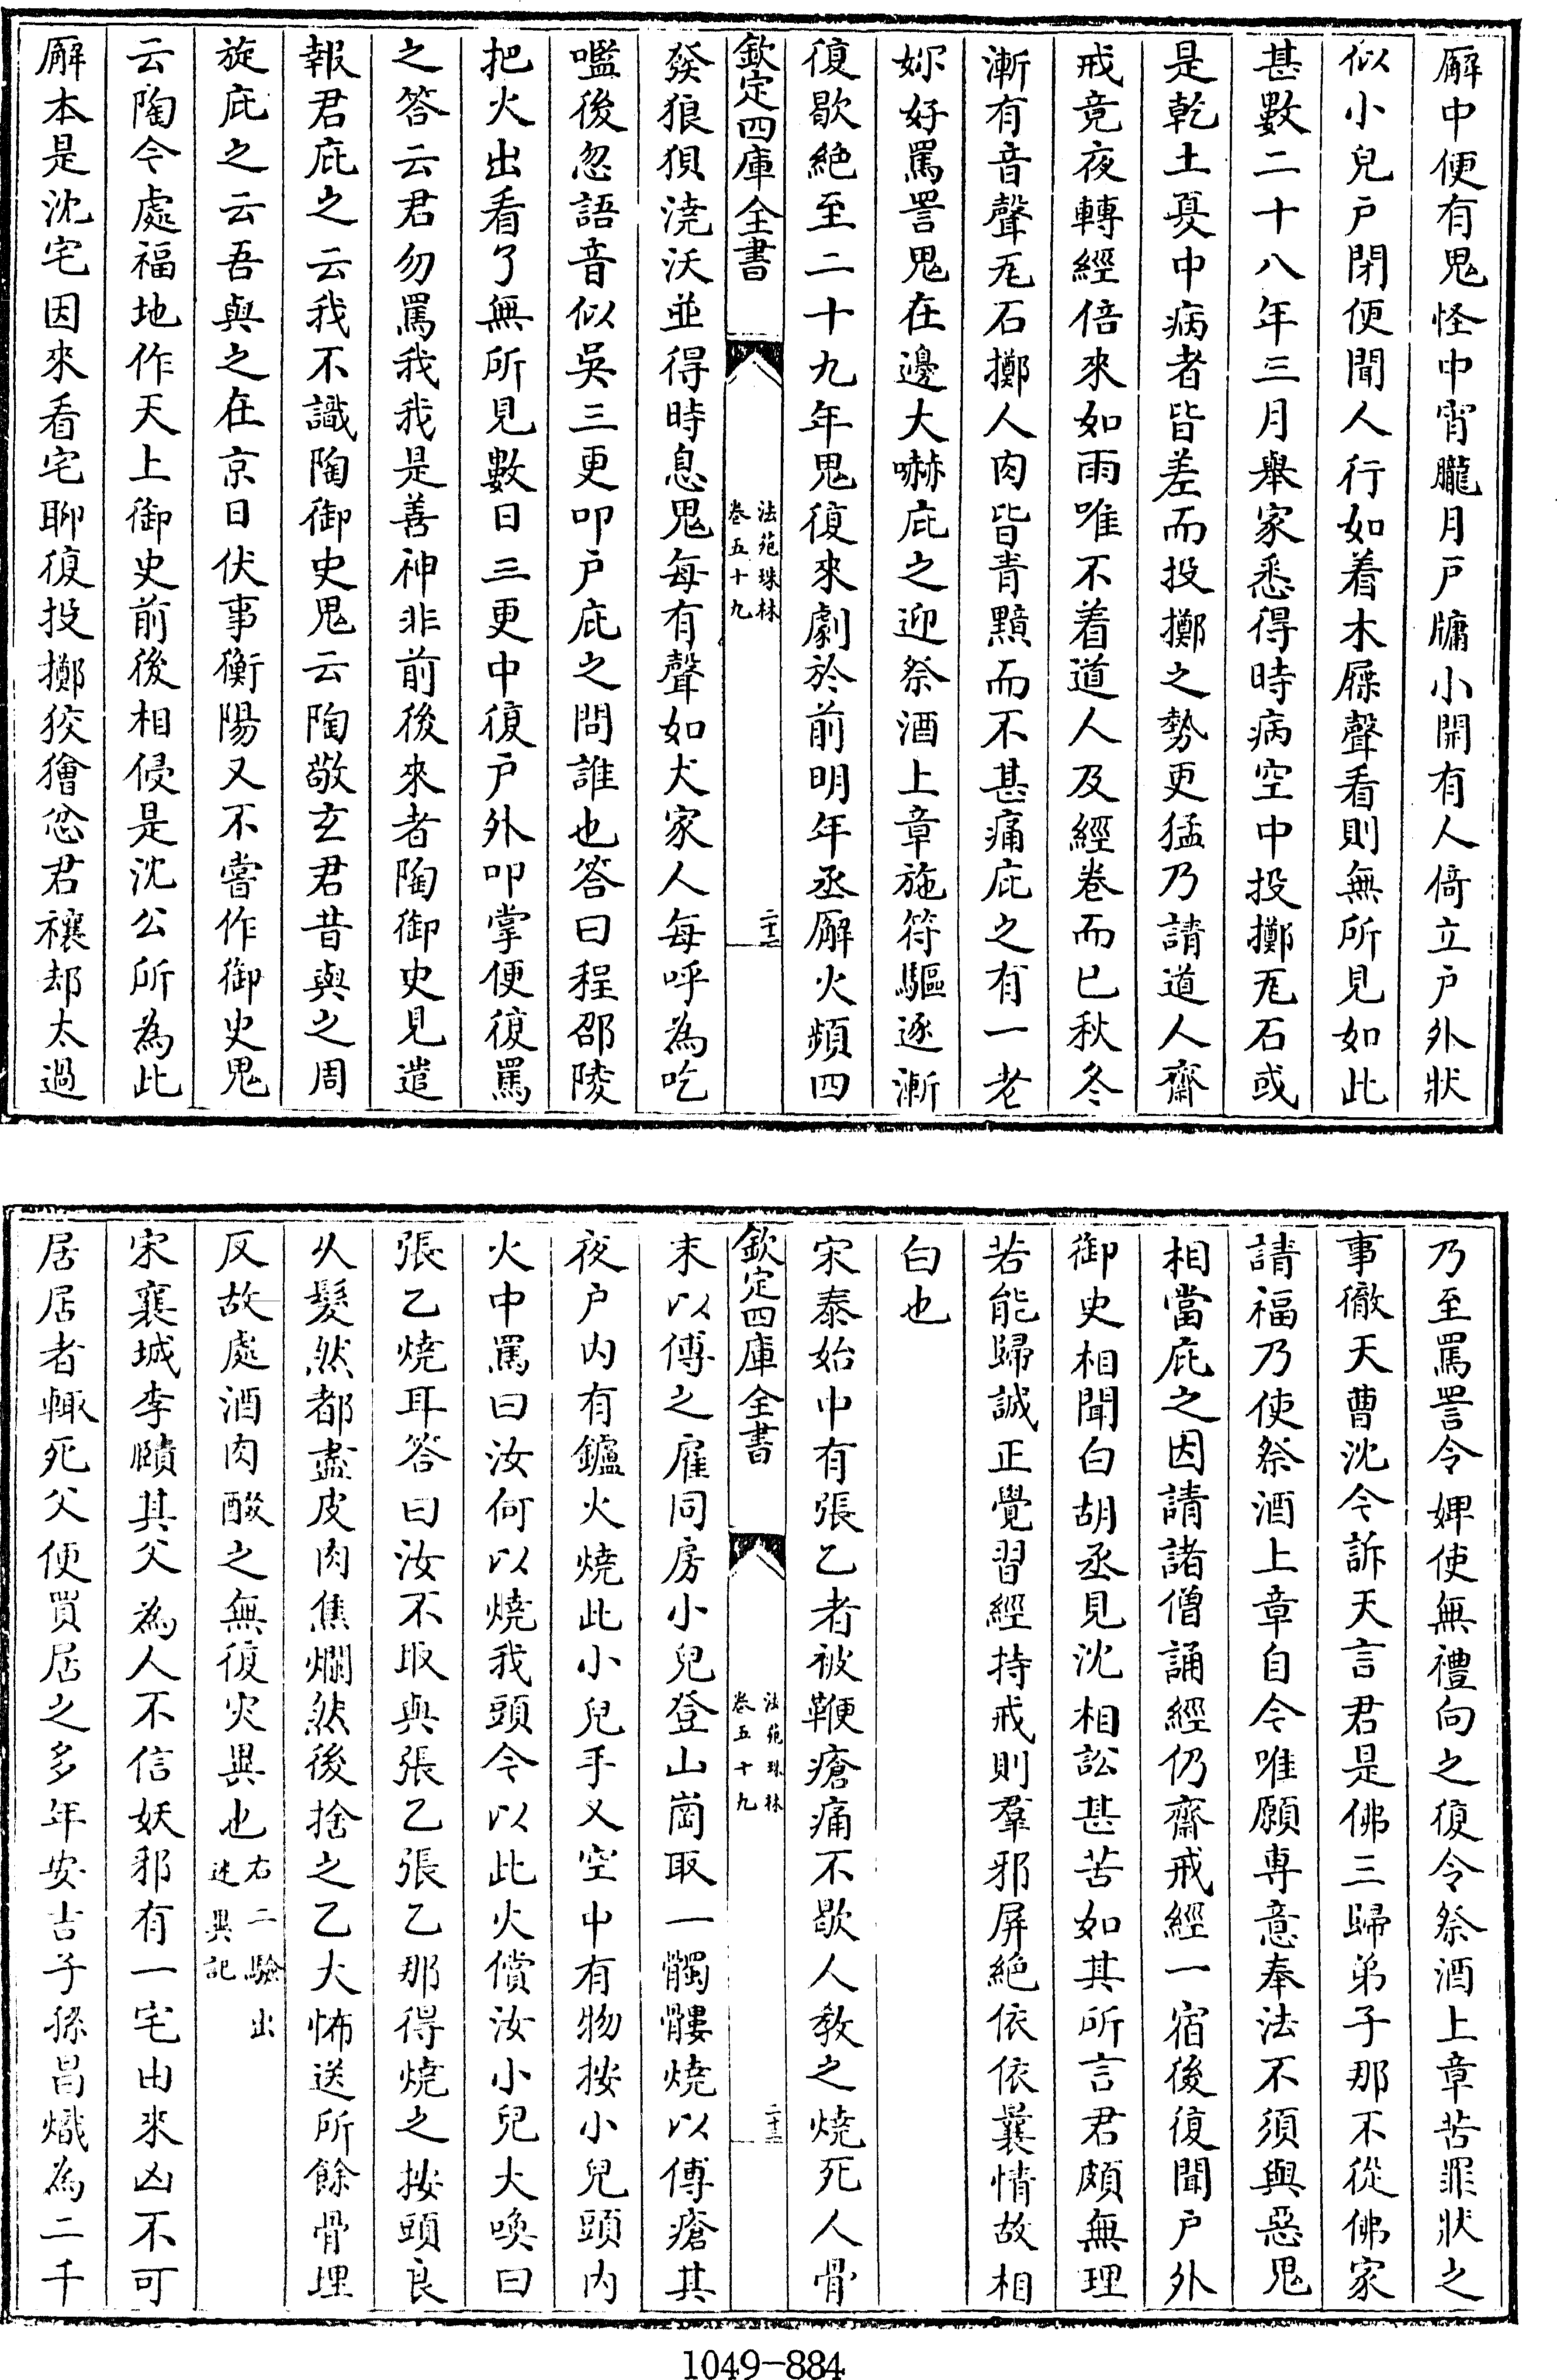 廨中便有鬼怪中宵朧月戸牗小開有人倚立戸外狀
似小兒戸閉便聞人行如着木屧聲看則無所見如此
甚數二十八年三月舉家悉得時病空中投擲瓦石或
是乾土夏中病者皆差而投擲之勢更猛乃請道人齋
戒竟夜轉經倍來如雨唯不着道人及經卷而已秋冬
漸有音聲瓦石擲人肉皆青黯而不甚痛庇之有一老
妳好罵詈鬼在邊大嚇庇之迎祭酒上章施符驅逐漸
復歇絶至二十九年鬼復來劇於前明年丞廨火頻四
欽定四庫全書
法苑珠林
卷五十九
二十三
發狼狽澆沃並得時息鬼每有聲如犬家人每呼為吃
嚂後忽語音似吳三更叩戸庇之問誰也答曰程邵陵
把火出看了無所見數日三更中復戸外叩掌便復罵
之答云君勿罵我我是善神非前後來者陶御史見遣
報君庇之云我不識陶御史鬼云陶敬玄君昔與之周
旋庇之云吾與之在京日伏事衡陽又不嘗作御史鬼
云陶今處福地作天上御史前後相侵是沈公所為此
廨本是沈宅因來看宅聊復投擲狡獪忿君禳却太過
乃至罵詈令婢使無禮向之復令祭酒上章苦罪狀之
事徹天曹沈今訴天言君是佛三歸弟子那不從佛家
請福乃使祭酒上章自今唯願專意奉法不須與惡鬼
相當庇之因請諸僧誦經仍齋戒經一宿後復聞戸外
御史相聞白胡丞見沈相訟甚苦如其所言君頗無理
若能歸誠正覺習經持戒則羣邪屏絶依依曩情故相
白也
宋泰始中有張乙者被鞭瘡痛不歇人教之燒死人骨
欽定四庫全書
法苑珠林
卷五十九
二十三
末以傅之雇同房小兒登山崗取一髑髏燒以傅瘡其
夜戸内有鑪火燒此小兒手又空中有物按小兒頭内
火中罵曰汝何以燒我頭今以此火償汝小兒大喚曰
張乙燒耳答曰汝不取與張乙張乙那得燒之按頭良
乆髮然都盡皮肉焦爛然後捨之乙大怖送所餘骨埋
反故處酒肉醊之無復灾異也右二驗出
述異記
宋襄城李頤其父為人不信妖邪有一宅由來凶不可
居居者輒死父便買居之多年安吉子孫昌熾為二千
1049-884